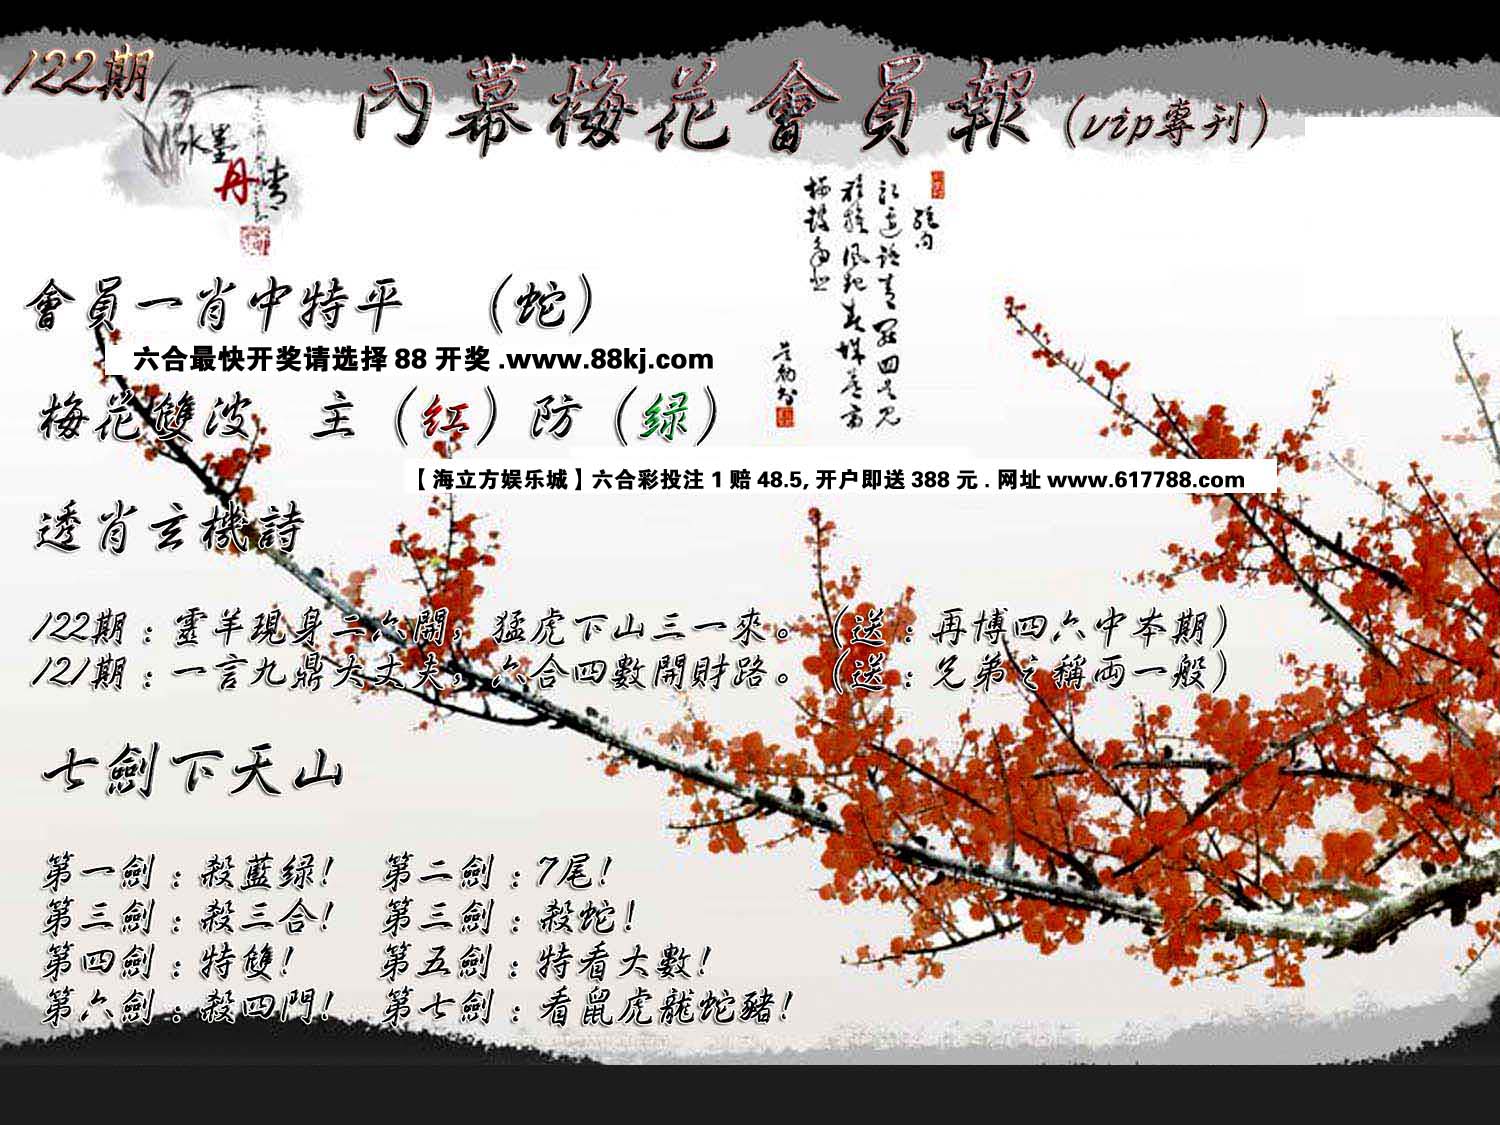 122期
內幕梅花會員報(vip專刊)
水墨
丹青
會員一肖中特平 (蛇)
六合最快开奖请选择 88 开奖 .www.88kj.com
梅花雙波 主(红)防(绿)
【海立方娱乐城】六合彩投注 1 赔 48.5, 开户即送 388 元 . 网址 www.617788.com
透肖玄機詩
122期:靈羊現身二六開,猛虎下山三一來。(送:再博四六中本期)
121期:一言九鼎大丈夫,六合四數開財路。(送:兄弟之稱兩一般)
七劍下天山
第一劍:殺藍绿! 第二劍:7尾!
第三劍:殺三合! 第三劍:殺蛇!
第四劍:特雙! 第五劍:特看大數!
第六劍:殺四門! 第七劍:看鼠虎龍蛇豬!